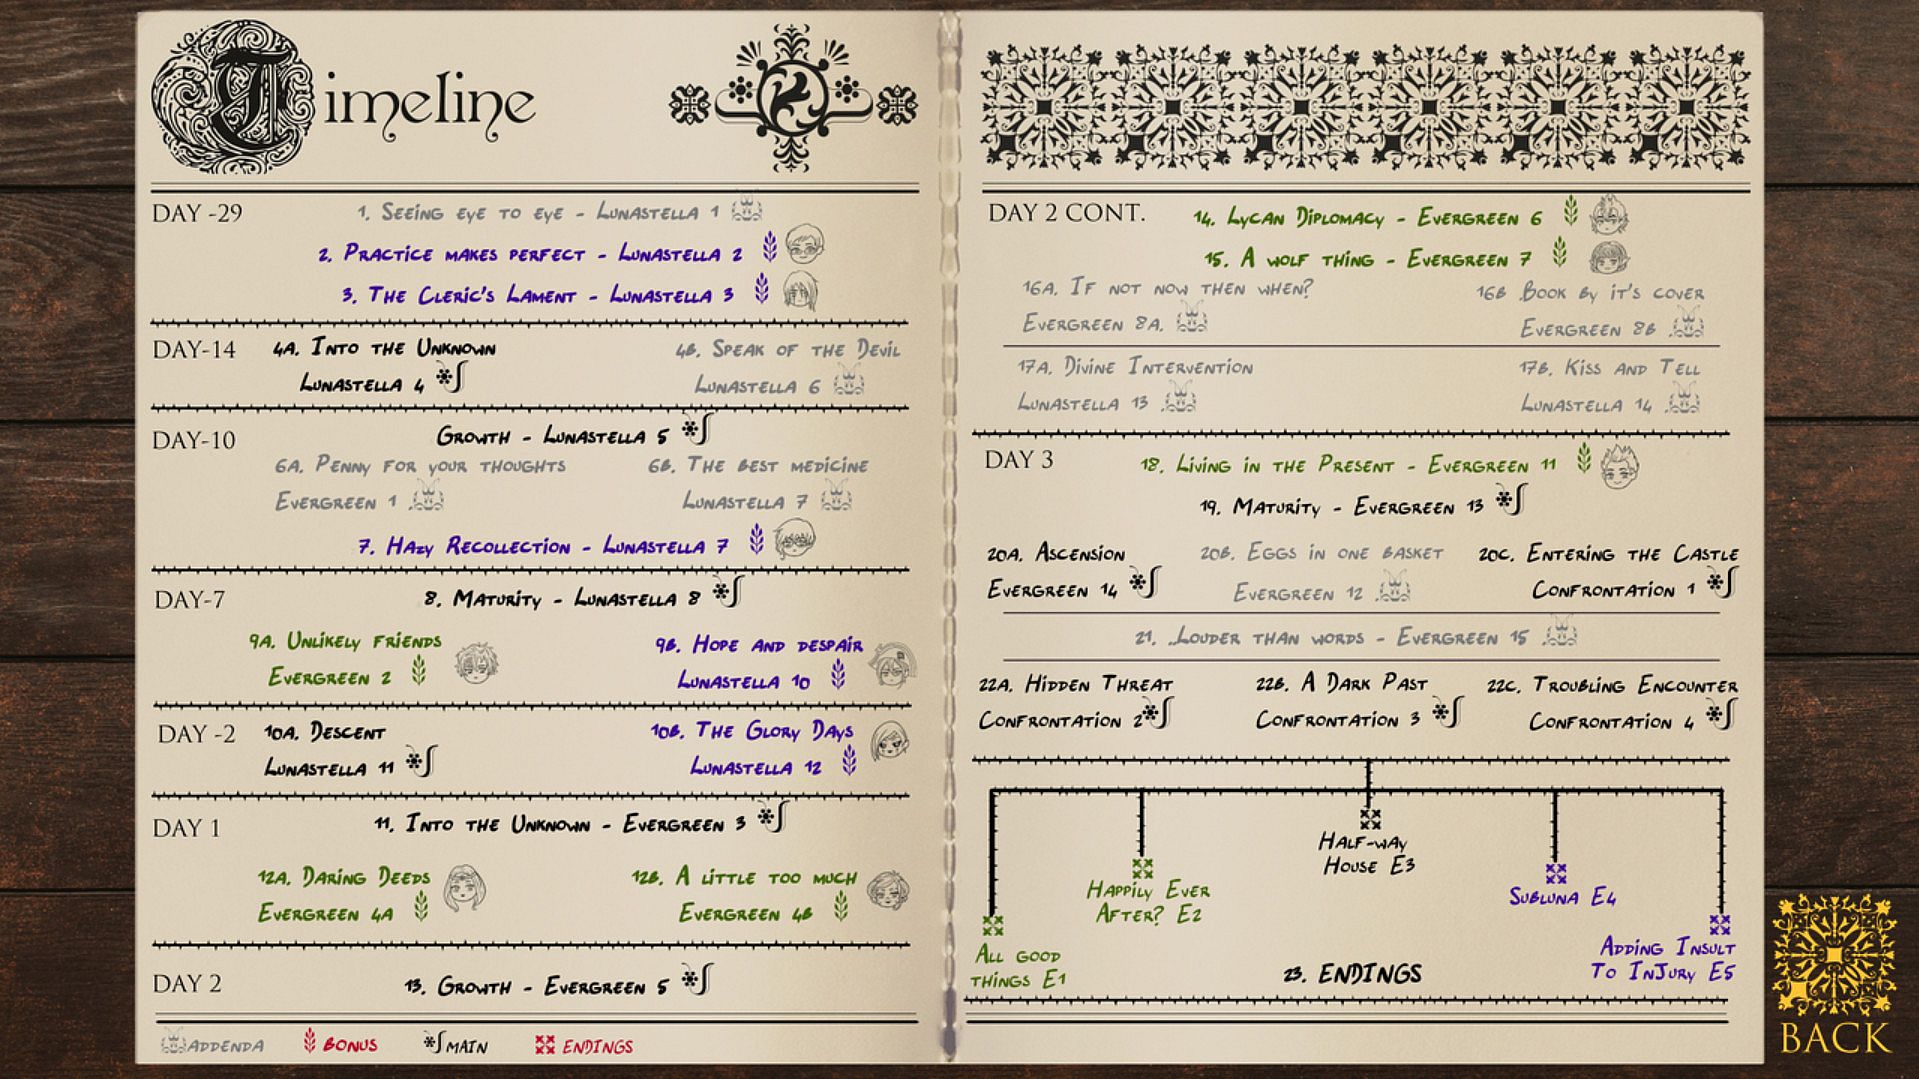 Timeline
DAY -29
1. Seeing eye to eye - Lunastella 1
2. Practice makes perfect - Lunastella 2
3. The Cleric's Lament - Lunastella 3
DAY-14
4A. Into the Unknown
Lunastella 4
4B. Speak of the Devil
Lunastella 6
DAY-10
Growth - Lunastella 5
6A. Penny for your thoughts
Evergreen 1
6B. The best medicine
Lunastella 7
7. Hazy Recollection - Lunastella 7
DAY-7
8. Maturity - Lunastella 8
9A. Unlikely friends
Evergreen 2
9B. Hope and despair
Lunastella 10
DAY -2
10A. Descent
Lunastella 11
10B. The Glory Days
Lunastella 12
DAY 1
11. Into the Unknown - Evergreen 3
12A. Daring Deeds
Evergreen 4A
12B. A little too much
Evergreen 4B
DAY 2
13. Growth - Evergreen 5
ADDENDA
BONUS
MAIN
ENDINGS
DAY 2 CONT.
14. Lycan Diplomacy - Evergreen 6
15. A wolf thing - Evergreen 7
16A. If not now then when?
Evergreen 8A.
16B Book by it's cover
Evergreen 8B
17A. Divine Intervention
Lunastella 13
17B. Kiss and Tell
Lunastella 14
DAY 3
18. Living in the Present - Evergreen 11
19. Maturity - Evergreen 13
20A. Ascension
Evergreen 14
20B. Eggs in one basket
Evergreen 12
20C. Entering the Castle
Confrontation 1
21. ..Louder than words - Evergreen 15
22A. Hidden Threat
Confrontation 2
22B. A Dark Past
Confrontation 3
22C. Troubling Encounter
Confrontation 4
Half-way
House E3
Happily Ever
After? E2
Subluna E4
All good
things E1
Adding Insult
To Injury E5
23. ENDINGS
BACK